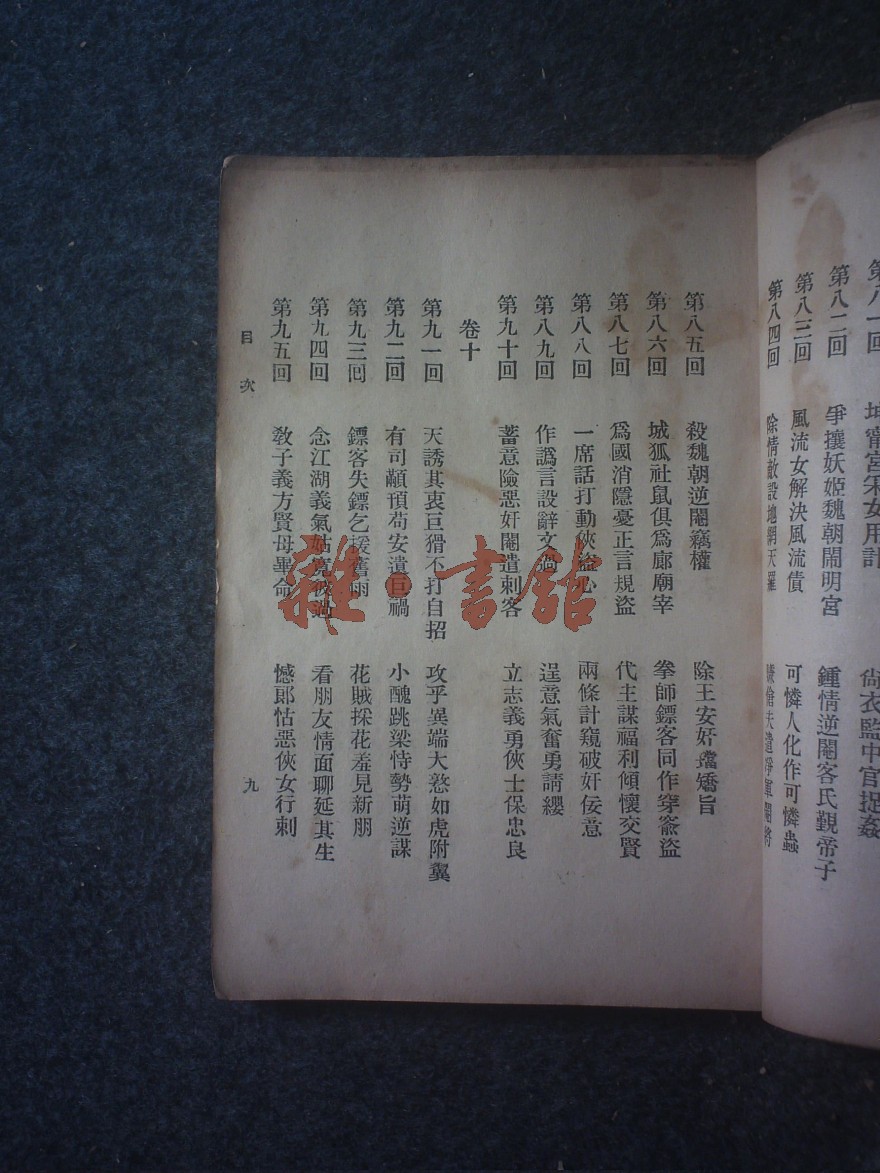 第八一回　宮采女用計　尙衣監中官捉姦
第八二回　爭攘妖姬魏朝鬧明宮　鍾情逆閹客氏覲帝子
第八三回　風流女解決風流債　可憐人化作可憐蟲
第八四回　除情敵設地網天羅
第八五回　殺魏朝逆閹竊權　除王安奸璫矯旨
第八六回　城狐社鼠俱爲廊廟宰　拳師鏢客同作穿窬盜
第八七回　爲國消隱憂正言規盜　代主謀福利傾懷交賢
第八八回　一席話打動俠盜心　兩條計窺破奸佞意
第八九回　作譌言設辭文過　逞意氣奮勇請纓
第九十回　蓄意險惡奸閹遣刺客　立志義勇俠士保忠良
卷十
第九一回　天誘其衷巨猾不打自招　攻乎異端大憝如虎附翼
第九二回　有司顢頇苟安遺巨禍　小醜跳梁恃勢萌逆謀
第九三回　鏢客失鏢乞援舊雨　花賊採花羞見新朋
第九四回　念江湖義氣姑寬彼過　看朋友情面聊延其生
第九五回　敎子義方賢母畢命　憾郞怙惡俠女行刺
目次
九
雜·書館